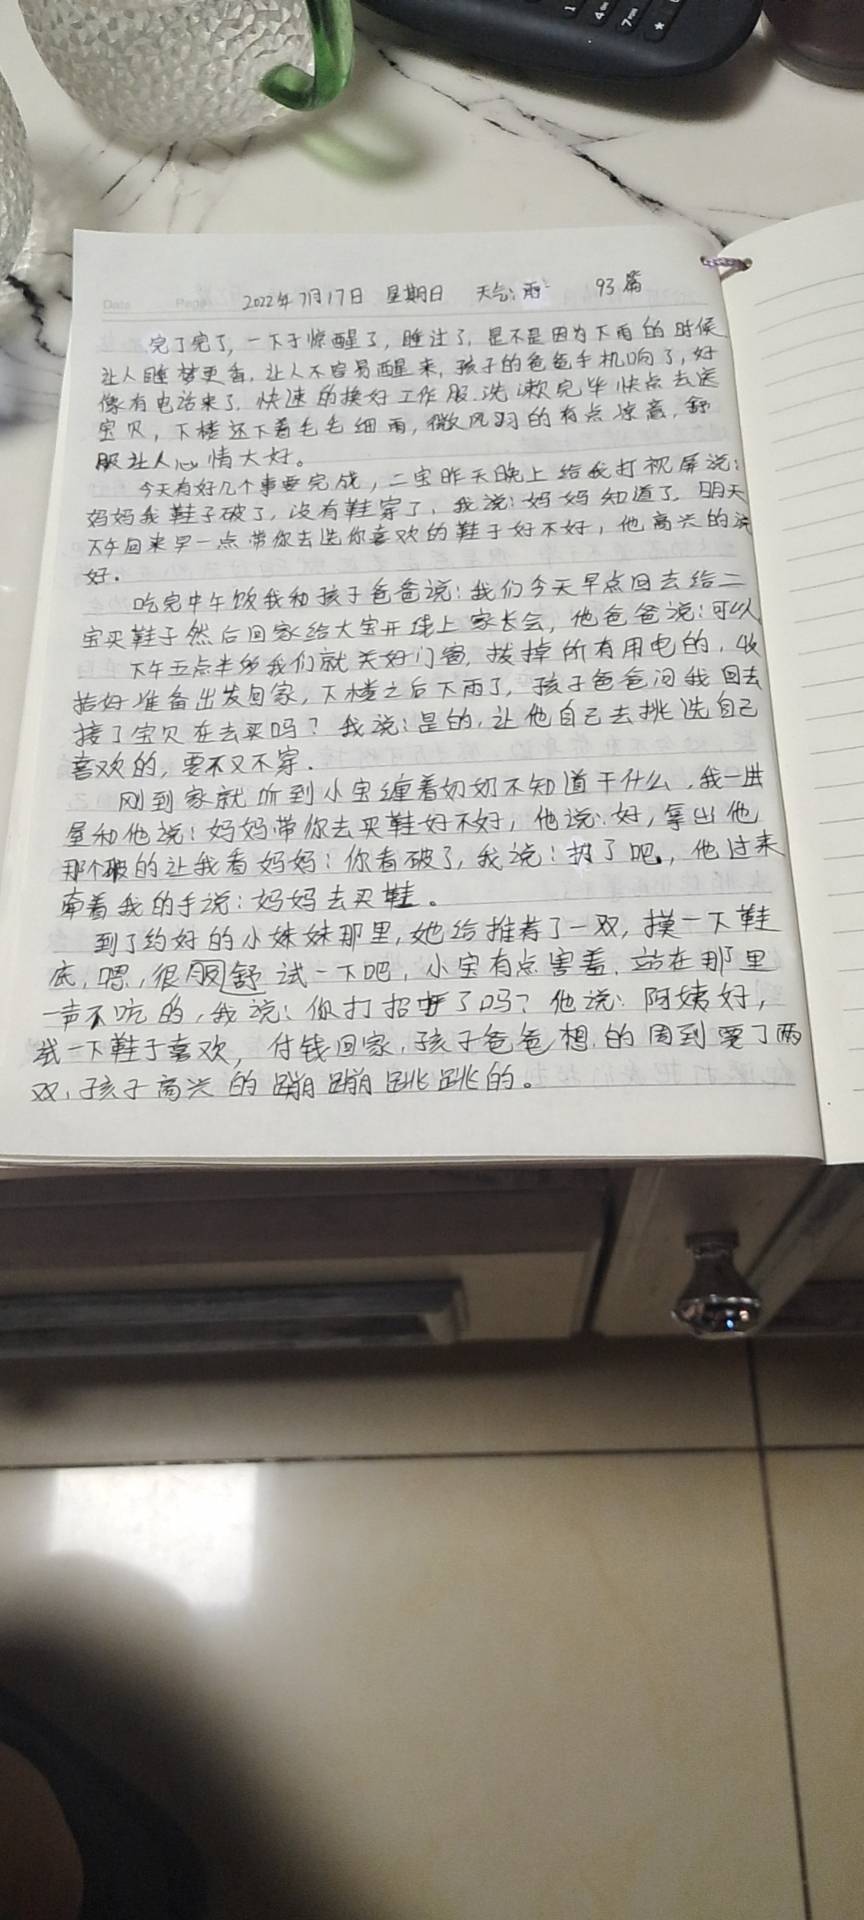 1
4
7
*
Date
Page
2022年7月17日 星期日 天气:雨 93篇
完了完了,一下子惊醒了,睡过了,是不是因为下雨的时候
让人睡梦更香,让人不容易醒来,孩子的爸爸手机响了,好
像有电话来了,快速的换好工作服,洗漱完毕快点去送
宝贝,下楼还下着毛毛细雨,微风习的有点凉意,舒
服让人心情大好。
今天有好几个事要完成,二宝昨天晚上给我打视屏说:
妈妈我鞋子破了,没有鞋穿了,我说:妈妈知道了,明天
下午回来早一点带你去选你喜欢的鞋子好不好,他高兴的说
好.
吃完中午饭我和孩子爸爸说:我们今天早点回去给二
宝买鞋子然后回家给大宝开线上家长会,他爸爸说:可以
下午五点半多我们就关好门窗,拔掉所有用电的,收
拾好准备出发回家,下楼之后下雨了,孩子爸爸问我回去
接了宝贝在去买吗?我说:是的,让他自己去挑选自己
喜欢的,要不又不穿.
刚到家就听到小宝缠着奶奶不知道干什么,我一进
屋和他说:妈妈带你去买鞋好不好,他说:好,拿出他
那个破的让我看妈妈:你看破了,我说:扔了吧.,他过来
牵着我的手说:妈妈去买鞋。
到了约好的小妹妹那里,她给推荐了一双,摸一下鞋
底,嗯,很服舒试一下吧,小宝有点害羞,站在那里
一声不吭的,我说:你打招呼了吗?他说:阿姨好,
试一下鞋子喜欢,付钱回家,孩子爸爸想的周到要了两
双,孩子高兴的蹦蹦跳跳的。